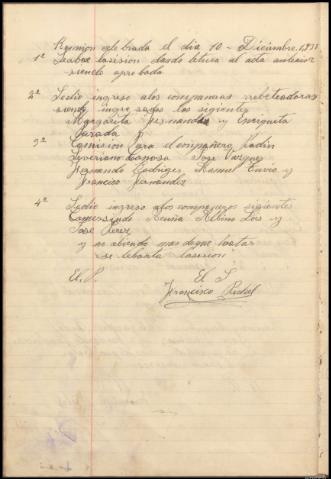 Reunion celebrada el dia 10 - Diciembre 1931
1º Seabre lasesion dando letura al ada anterior
siendo aprobada
2º Sedio ingreso alas companeras rebeteadoras
siendo ingresadas las sigientes
Margarita Fernandes y Enriqueta
Parada
3º Comision para el compañero Padin
Severiano Canosa Jose Vazquez
Fernando Rodriges Manuel y
Francisco Fernandez
4º Sedio ingreso alos compañeros sigientes
Gumersindo Acuña Albino Lois y
Jose Perez
y no abiendo mas deque tratar
se lebanta lasesion
El P. El S
Francisco